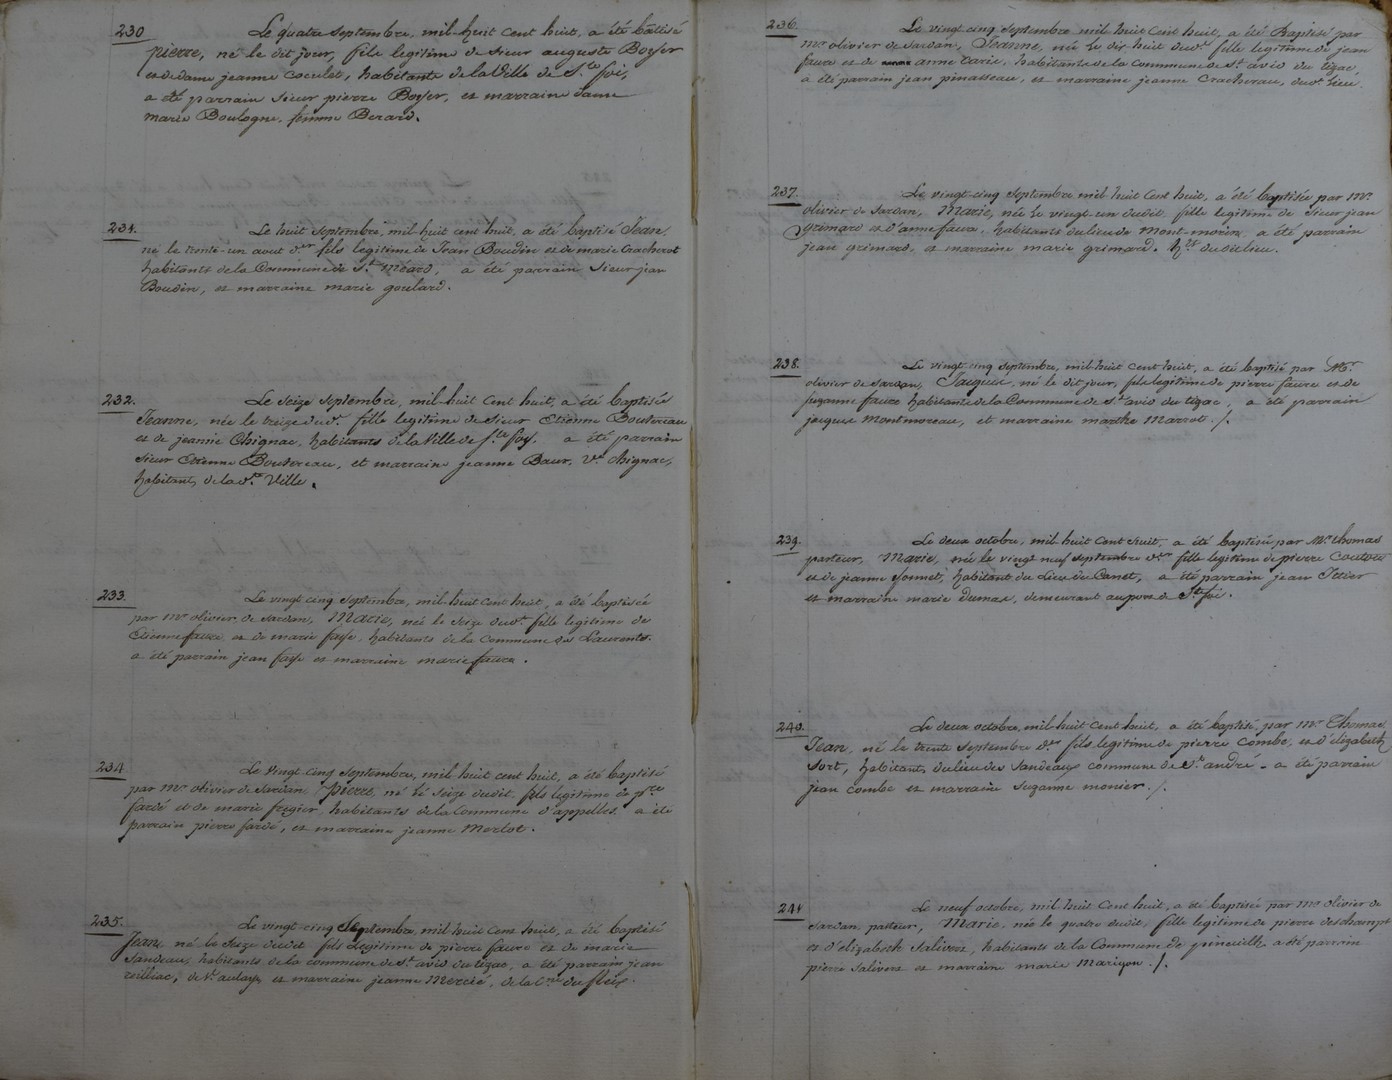 230 Le quatre septembre, mil-huit cent huit, a été bâtisé
pierre, né le dit jour, fils legitime de Sieur auguste Boyer
et de dame jeanne coculet, habitants de la Ville de Ste foi,
a été parrain sieur pierre Boyer, et marraine dame
marie Boulogne, femme Berard.
231. Le huit septembre, mil-huit cent huit, a été baptisé Jean,
né le trente-un aout der fils legitime de Jean Boudin et de marie Cracherot
habitants de la Commune de St méard, a été parrain sieur jean
Boudin, et marraine marie goulard.
232. Le seize septembre, mil-huit cent huit, a été baptisée
Jeanne, née le treize dudt. fille legitime de Sieur Etienne Boutereau
et de jeanne Chignac, habitants de la Ville de Ste foy. a été parrain
sieur Etienne Boutereau, et marraine jeanne Baur, Ve chignac,
habitants de la de. Ville.
233. Le vingt cinq septembre, mil-huit cent huit, a été baptisée
par mr olivier de sardan, Marie, née le seize dudt fille legitime de
Etienne faure et de marie faye, habitants de la Commune des Laurents.
a été parrain jean faye et marraine marie faure.
234 Le vingt-cinq septembre, mil huit cent huit, a été baptisé
par mr olivier de sardan, pierre, né le seize dudit, fils legitime de pre
fardé et de marie fregier, habitants de la Commune d'appelles. a été
parrain pierre fardé, et marraine jeanne Merlot.
235. Le vingt-cinq Septembre, mil huit cent huit, a été baptisé
Jean, né le seize dudit fils legitime de pierre faure et de marie
Sandeau, habitants de la commune de St. avid du tizac, a été parrain jean
reilliac, de St. aulaye, et marraine jeanne Mercié, de la Cne du fleix.
236. Le vingt cinq Septembre mil huit cent huit, a été Baptisée par
mr olivier de sardan, Jeanne, née le dix huit dudt. fille legitime de jean
faure et de anne taris, habitants de la Commune de St avid du tizac,
a été parrain jean pinasseau, et marraine jeanne Cracherau, dudt. lieu.
237. Le vingt-cinq septembre mil huit cent huit, a été baptisée par mr
olivier de sardan, Marie, née le vingt-un dudit, fille legitime de Sieur jean
grimard et d'anne faure, habitants du lieu de mont-morin, a été parrain
jean grimard, et marraine marie grimard. hts du dit lieu.
238. Le vingt-cinq septembre, mil-huit cent huit, a été baptisé par Mr.
olivier de sardan, Jacques, né le dit jour, fils legitime de pierre faure et de
suzanne faure habitants de la Commune de St avid du tizac, a été parrain
jacques Montmoreau, et marraine marthe Marrot ./.
239. Le deux octobre, mil-huit cent huit, a été baptisée par Mr. thomas
pasteur, Marie, née le vingt neuf septembre der fille legitime de pierre coutou
et de jeanne Jonnet, habitant du Lieu du Canet, a été parrain jean Itier
et marraine marie dumas, demeurant au port de Ste foi.
240. Le deux octobre, mil-huit cent huit, a été baptisé par mr Thomas
Jean, né le trente septembre der fils legitime de pierre combe, et d'elizabeth
sort, habitants du lieu des Sandeaux commune de St. andré - a été parrain
jean combe et marraine suzanne monier ./.
241 Le neuf octobre, mil huit cent huit, a été baptisée par mr olivier de
sardan, pasteur, Marie, née le quatre dudit, fille legitime de pierre deschamps
et d'elizabeth salivert, habitants de la Commune de pineuilh, a été parrain
pierre salivert et marraine marie mariyon ./.